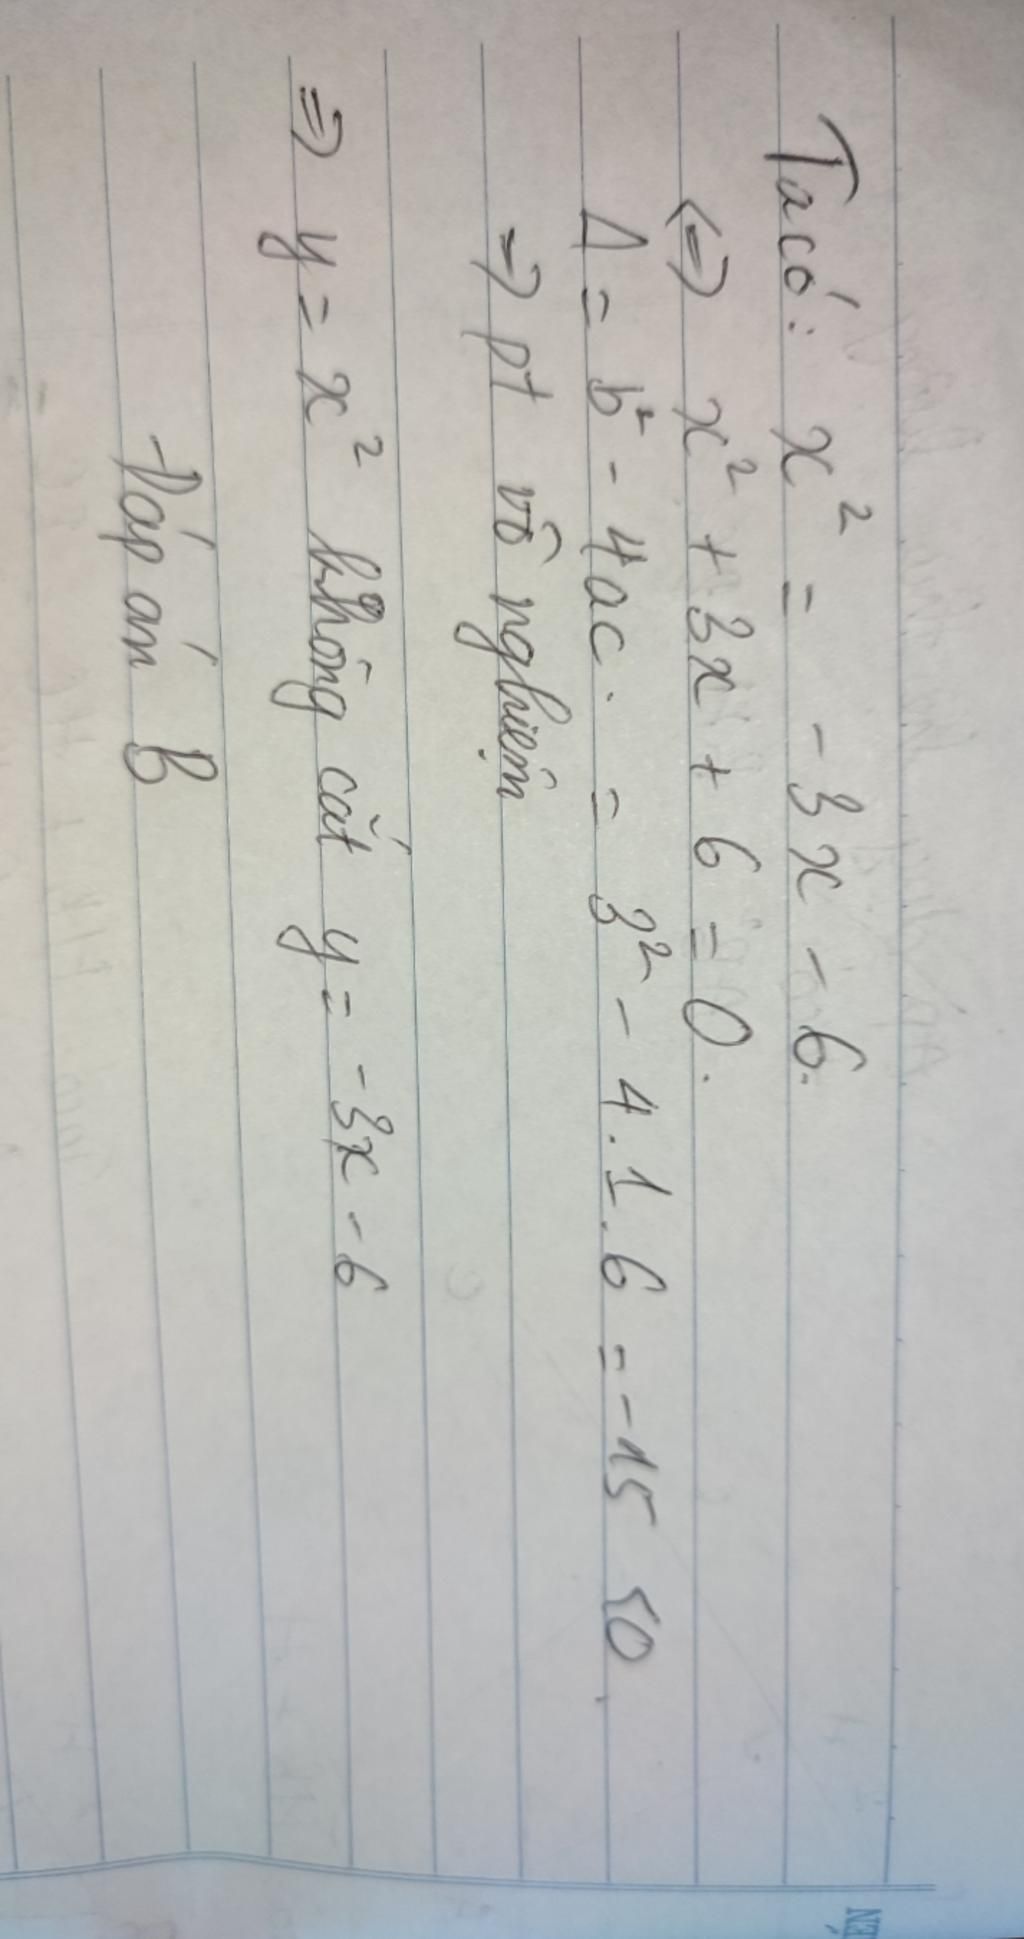 Ta có: x² = -3x - 6.
<=> x² + 3x + 6 = 0.
Δ = b² - 4ac. = 3² - 4.1.6 = -15 <0.
=> pt vô nghiệm
=> y = x² không cắt y = -3x - 6
Đáp án B